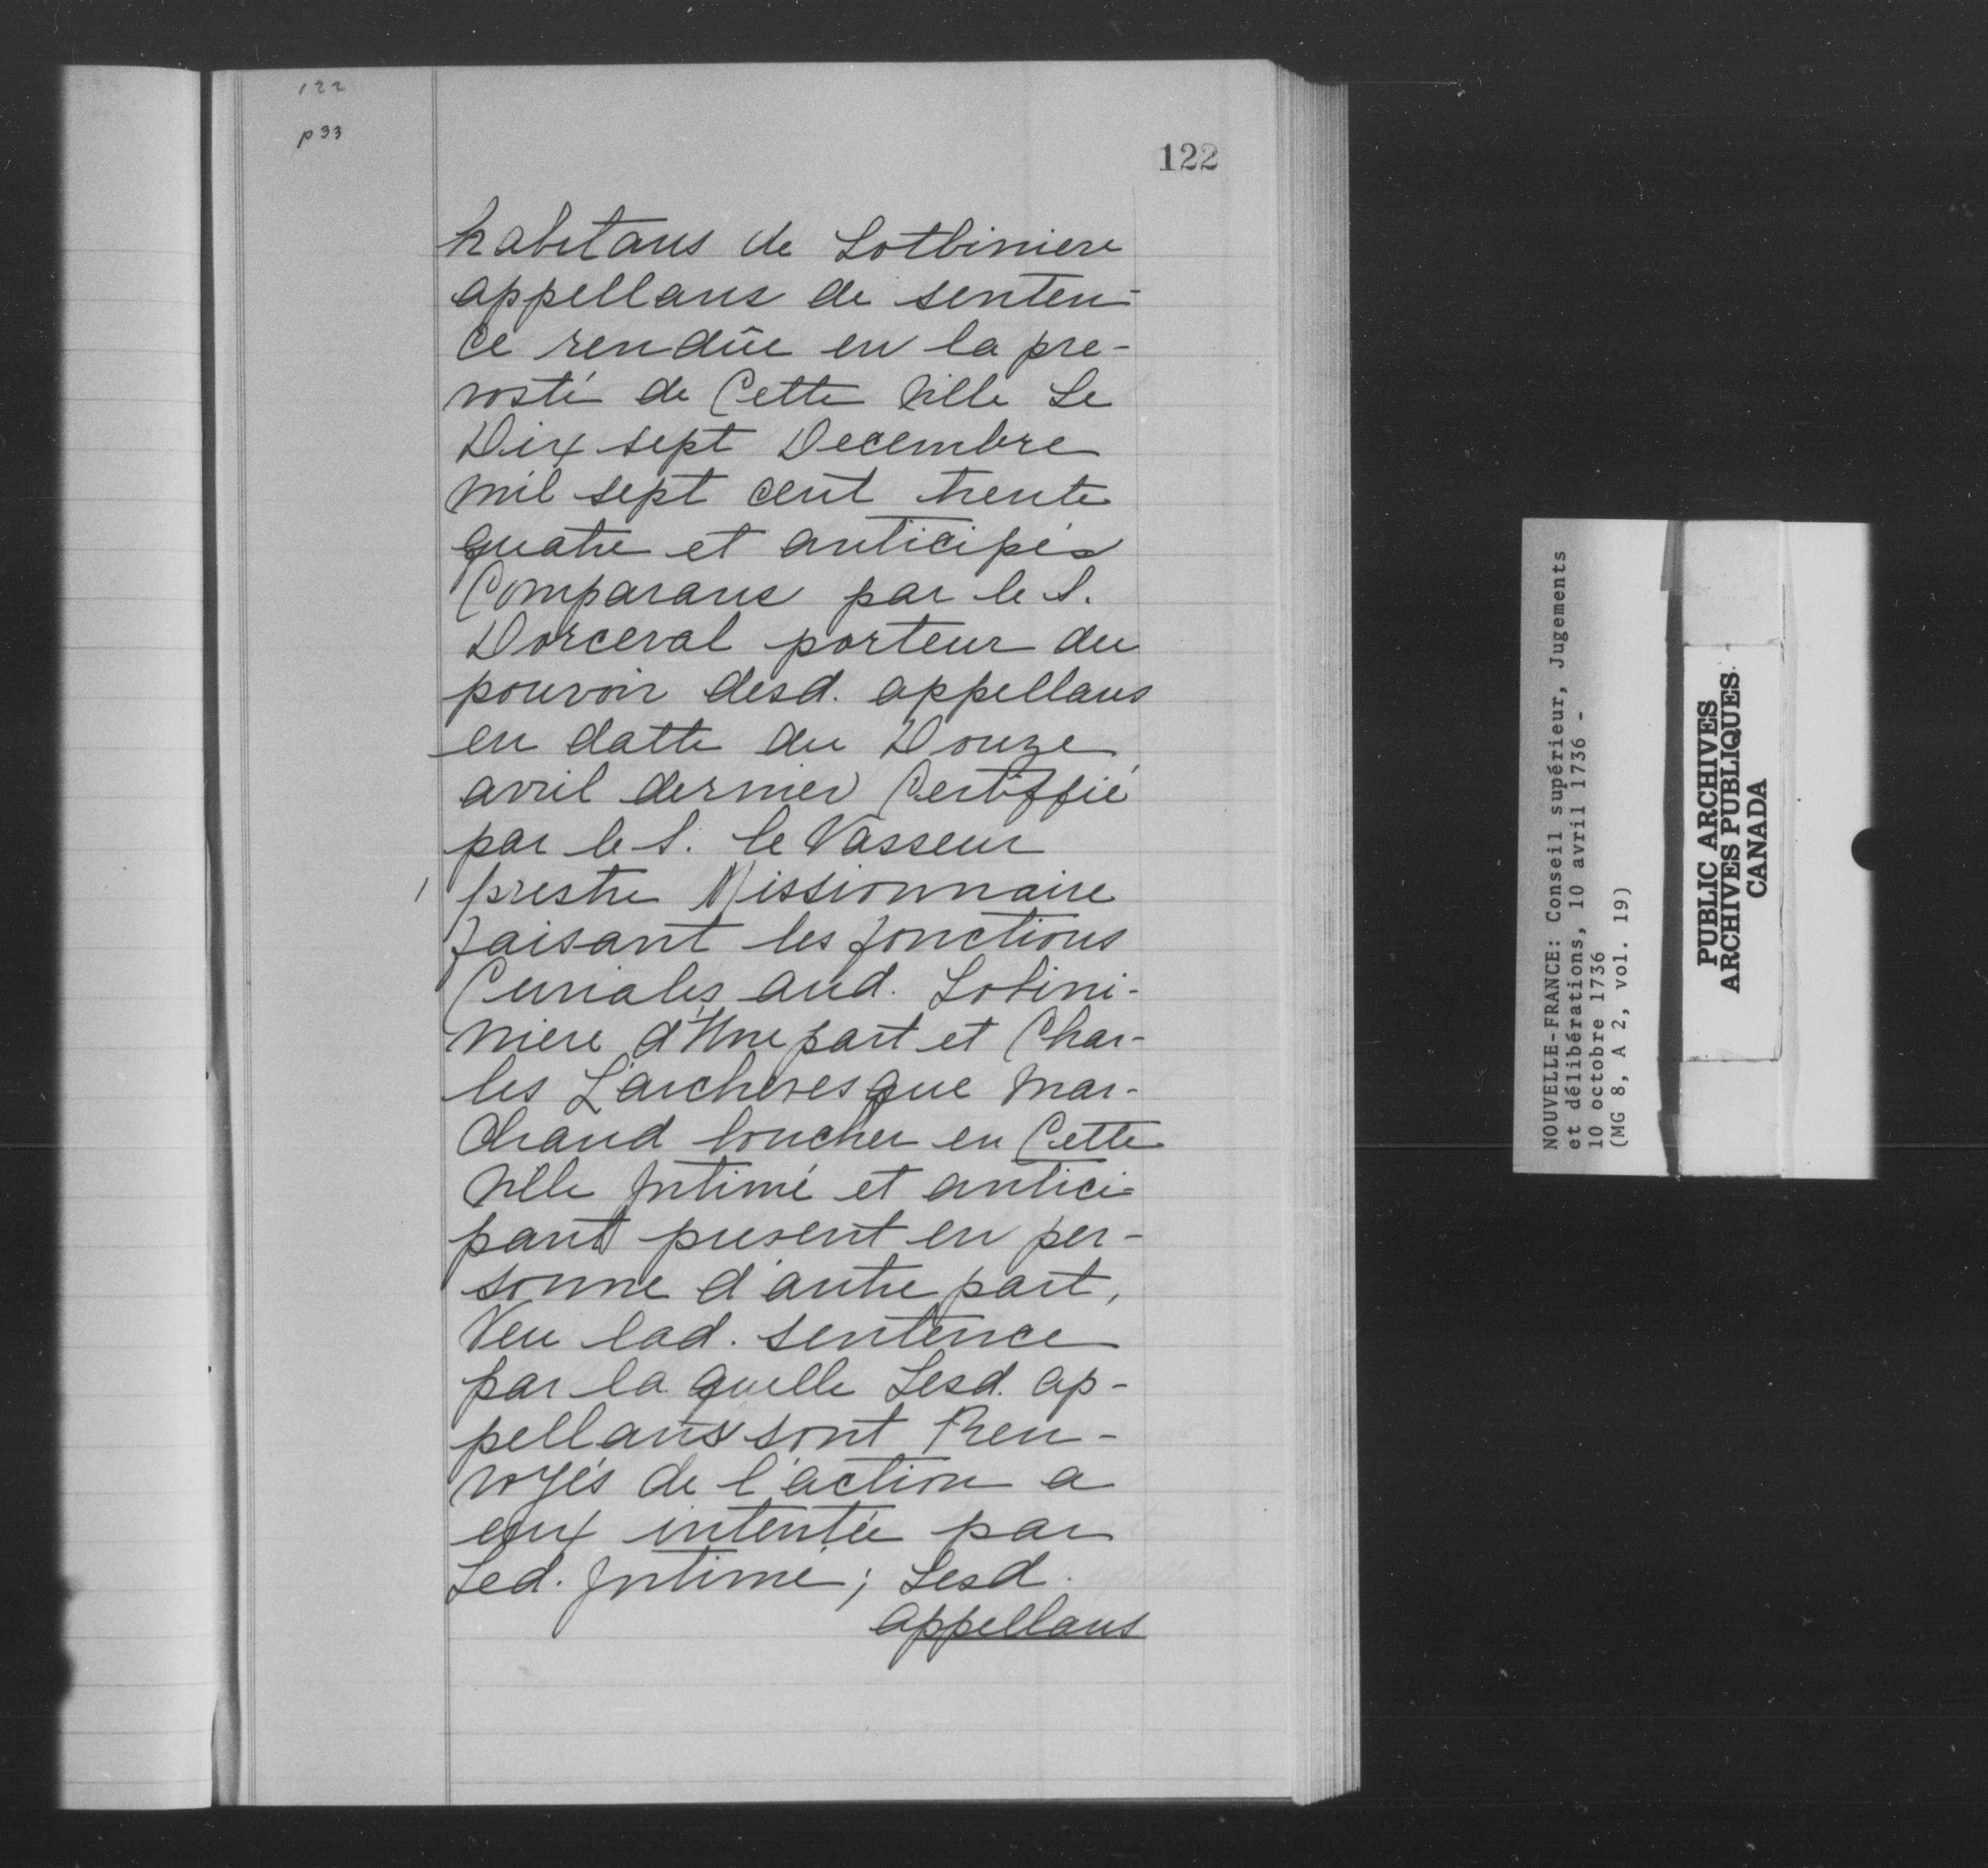 122
p 33
122
habitans de Lotbiniere
appellans de senten-
ce rendüe en la pre-
vosté de Cette Ville Le
Dix sept Decembre
mil sept cent trente
quatre et anticipés
Comparans par le S.
Dorceval porteur du
pouvoir desd. appellans
en datte du Douze
avril dernier Certiffié
par le S. le Vasseur
prestre Missionnaire
faisant les fonctions
Curiales aud. Lotini-
niere d'Une part et Char-
les L'archevesque Mar-
chand boucher en Cette
Ville Intimé et antici-
pant present en per-
sonne d'autre part,
Veu lad. sentence
par la quelle Lesd. ap-
pellans sont Ren-
voyés de l'action a
eux intentée par
Led. Intimé; Lesd.
appellans
NOUVELLE-FRANCE: Conseil supérieur, Jugements
et délibérations, 10 avril 1736 -
10 octobre 1736
(MG 8, A 2, vol. 19)
PUBLIC ARCHIVES
ARCHIVES PUBLIQUES
CANADA